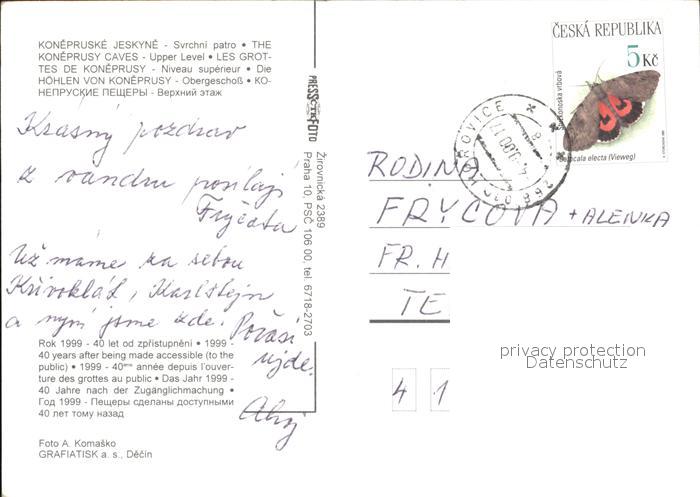 KONĚPRUSKÉ JESKYNĚ - Svrchní patro • THE
KONĚPRUSY CAVES - Upper Level • LES GROT-
TES DE KONĚPRUSY - Niveau supérieur • Die
HÖHLEN VON KONĚPRUSY - Obergeschoß • КО-
НЕПРУСКИЕ ПЕЩЕРЫ - Верхний этаж
Krásný pozdrav
z vandru posílají
Fryčata
Už máme za sebou
Křivoklát, Karlštejn
a nyní jsme zde. Počasí
ujde.
Ahoj
Rok 1999 - 40 let od zpřístupnění • 1999 -
40 years after being made accessible (to the
public) • 1999 - 40ème année depuis l'ouver-
ture des grottes au public • Das Jahr 1999 -
40 Jahre nach der Zugänglichmachung •
Год 1999 - Пещеры сделаны доступными
40 лет тому назад
Foto A. Komaško
GRAFIATISK a. s., Děčín
PRESSFOTO
Žirovnická 2389
Praha 10, PSČ 106 00, tel. 6718-2703
ČESKÁ REPUBLIKA
5 Kč
Catocala electa (Vieweg)
RODINA
FRYCOVA + ALENKA
FR. H
TE
4 1
privacy protection
Datenschutz